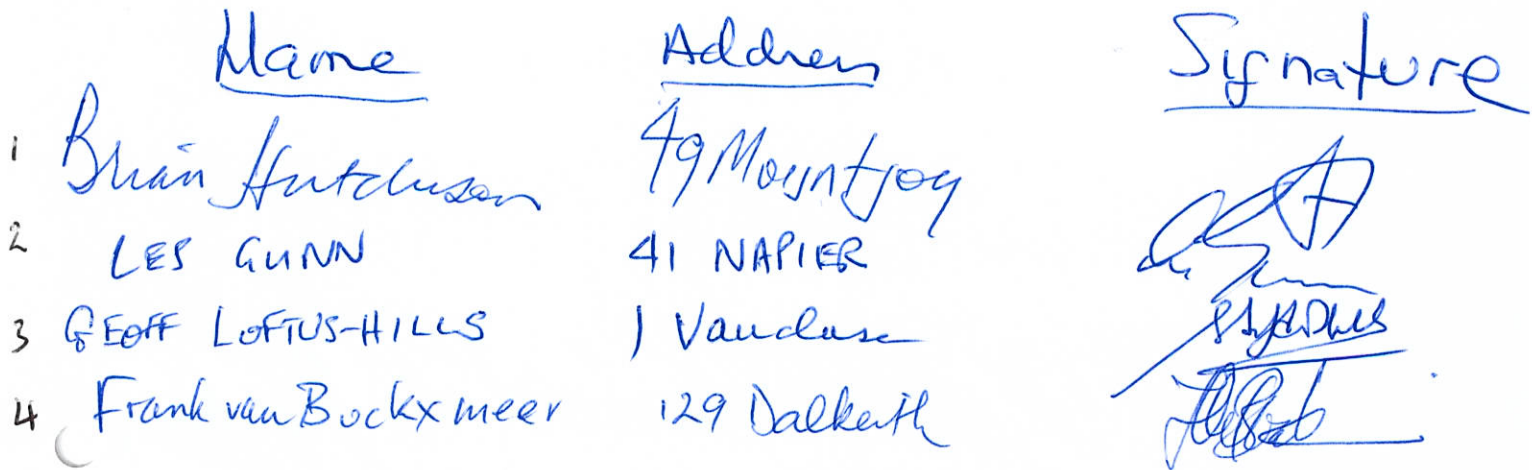 Name Address Signature
1 Brian Hutchison 49 Mountjoy
2 LES GUNN 41 NAPIER
3 GEOFF LOFTUS-HILLS 1 Vaucluse
4 Frank van Bockxmeer 129 Dalkeith